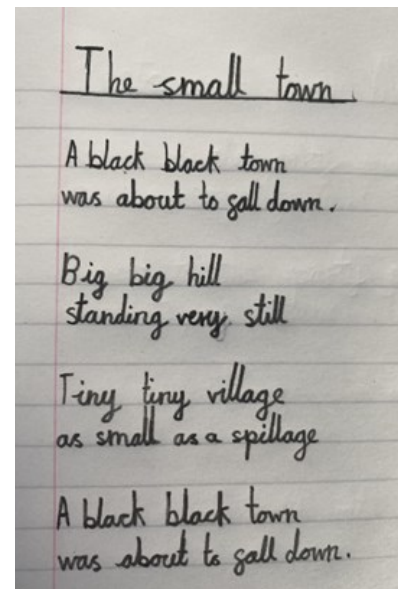 The small town
A black black town
was about to fall down.
Big big hill
standing very still
Tiny tiny village
as small as a spillage
A black black town
was about to fall down.